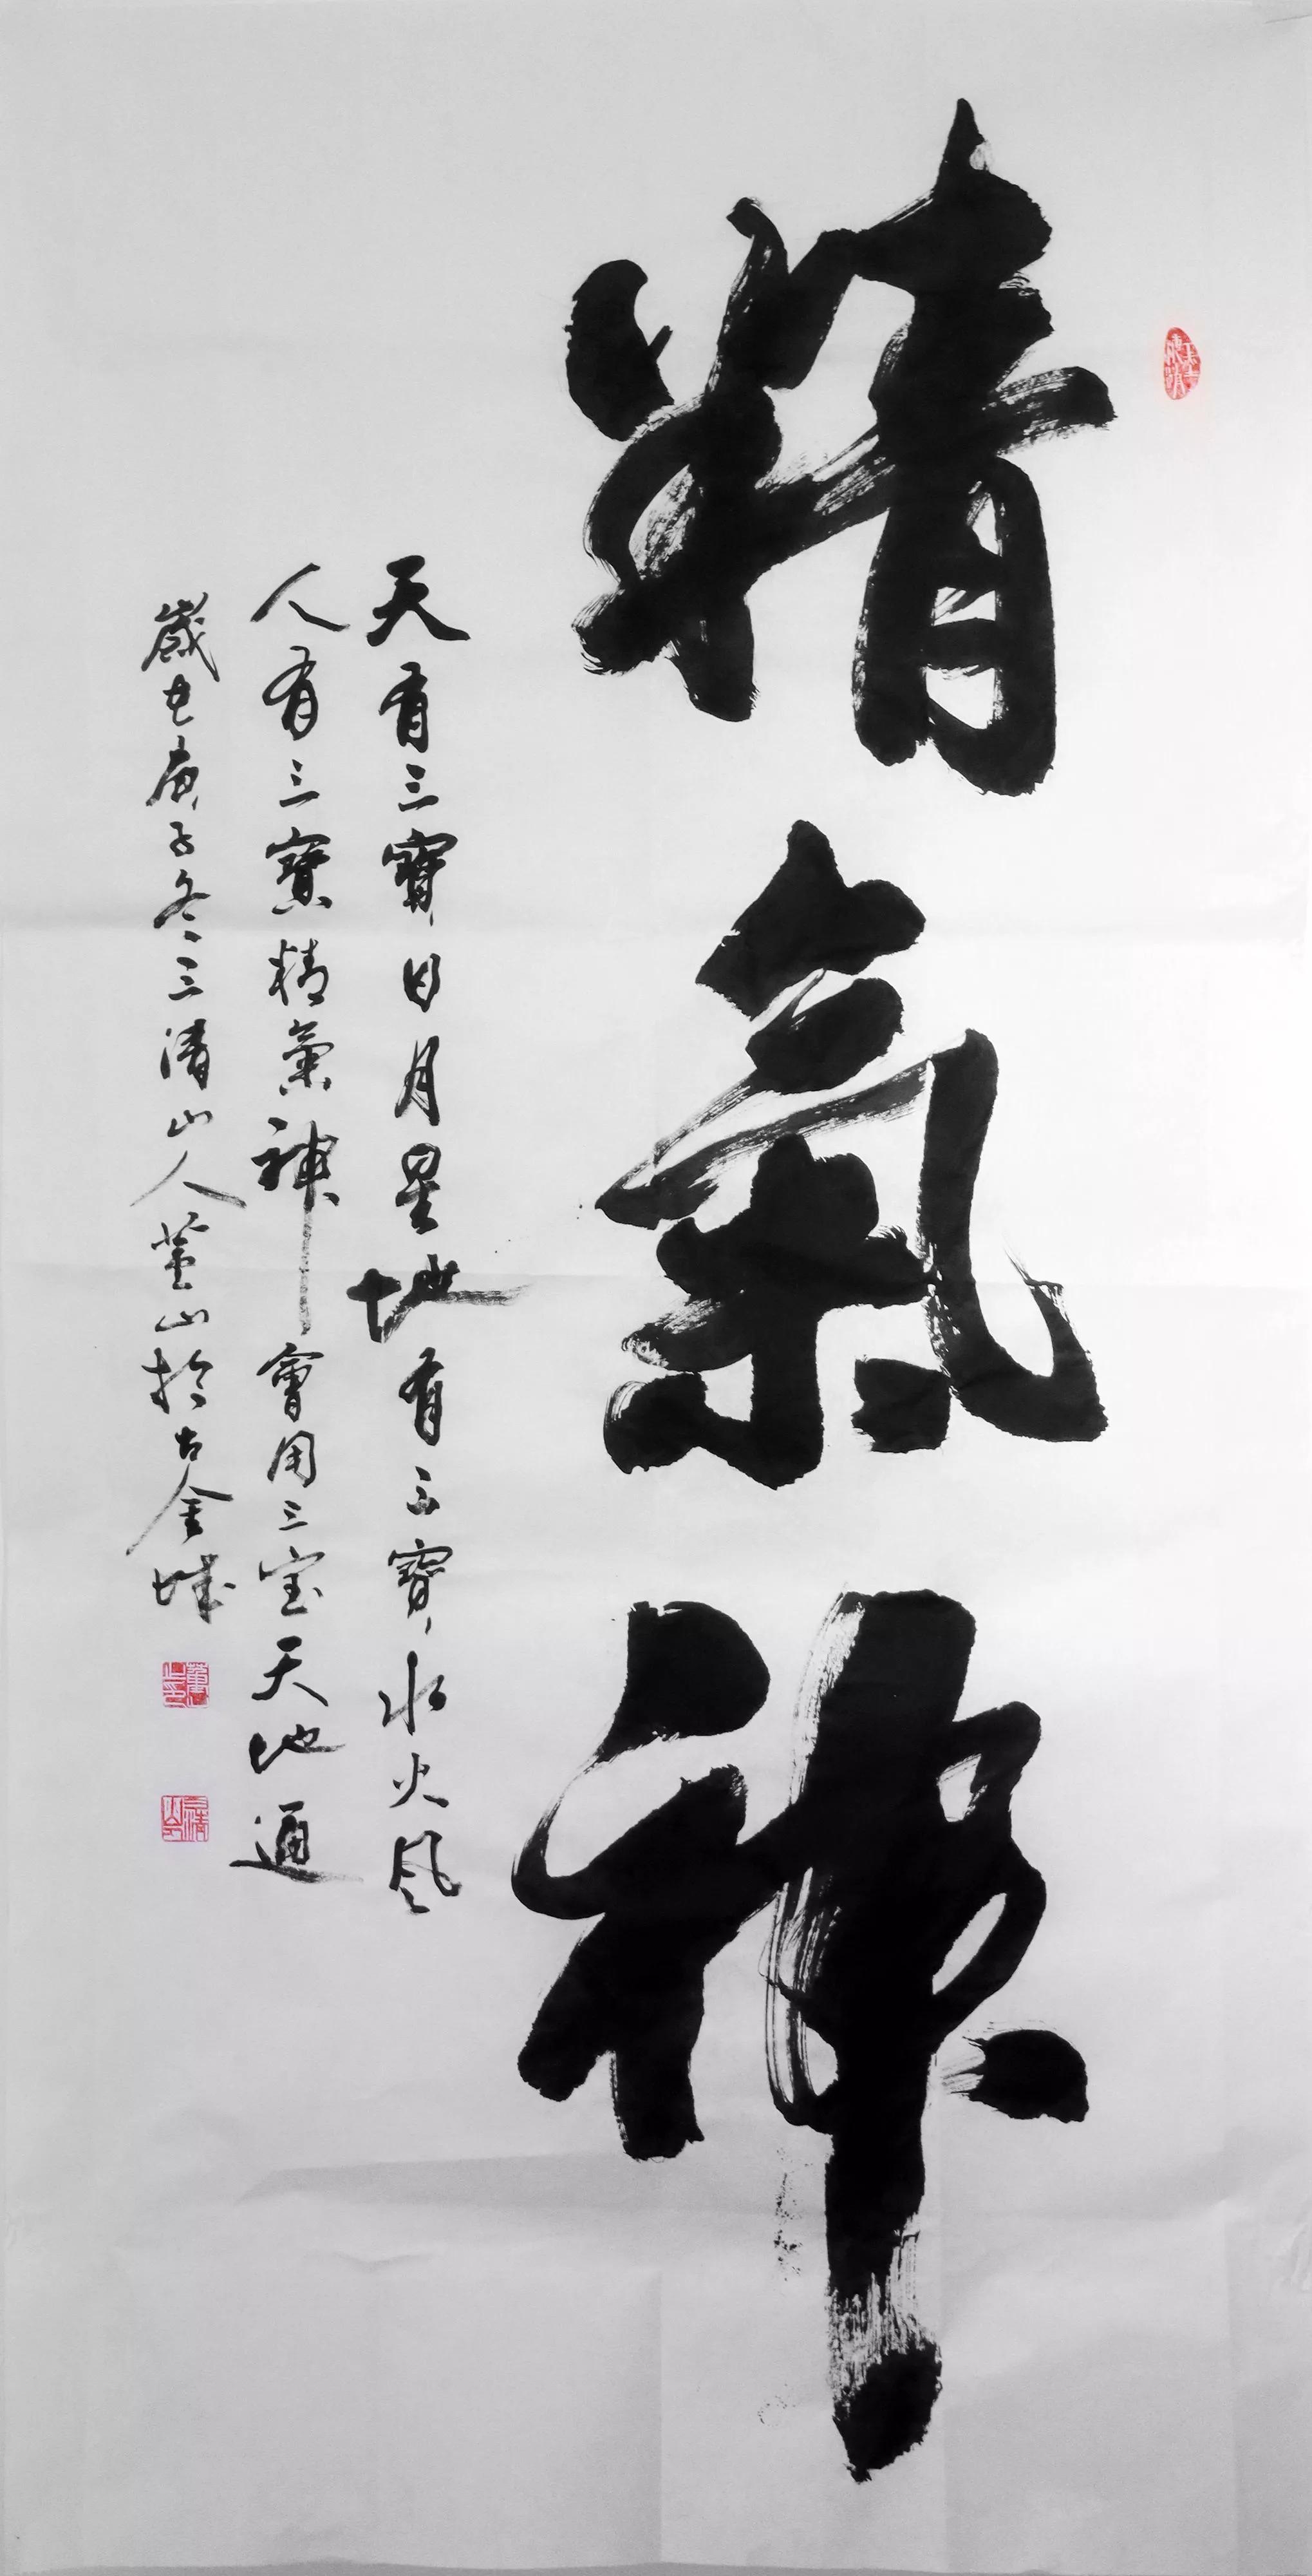 精氣神
天有三寶日月星地有三寶水火風
人有三寶精氣神會用三宝天地通
歲在庚子冬三清山人董山於古金城